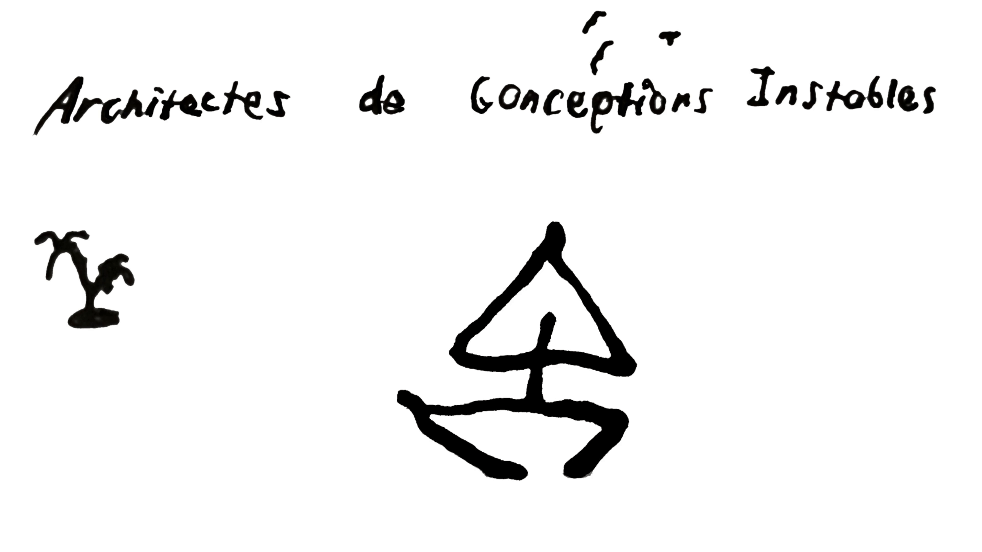 Architectes de Conceptions Instables